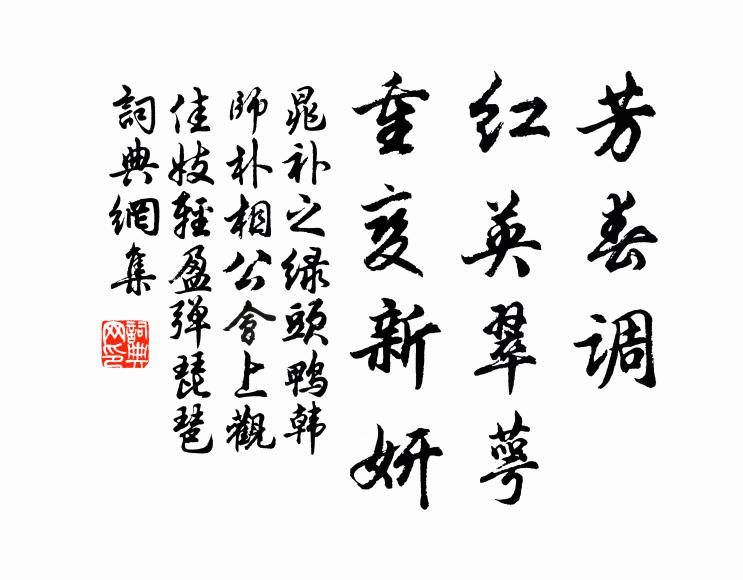 芳春调
红英翠萼
重变新妍
晁补之绿头鸭韩
师朴相公会上觀
佳妓輕盈弹琵琶
詞典網集
詞典網印